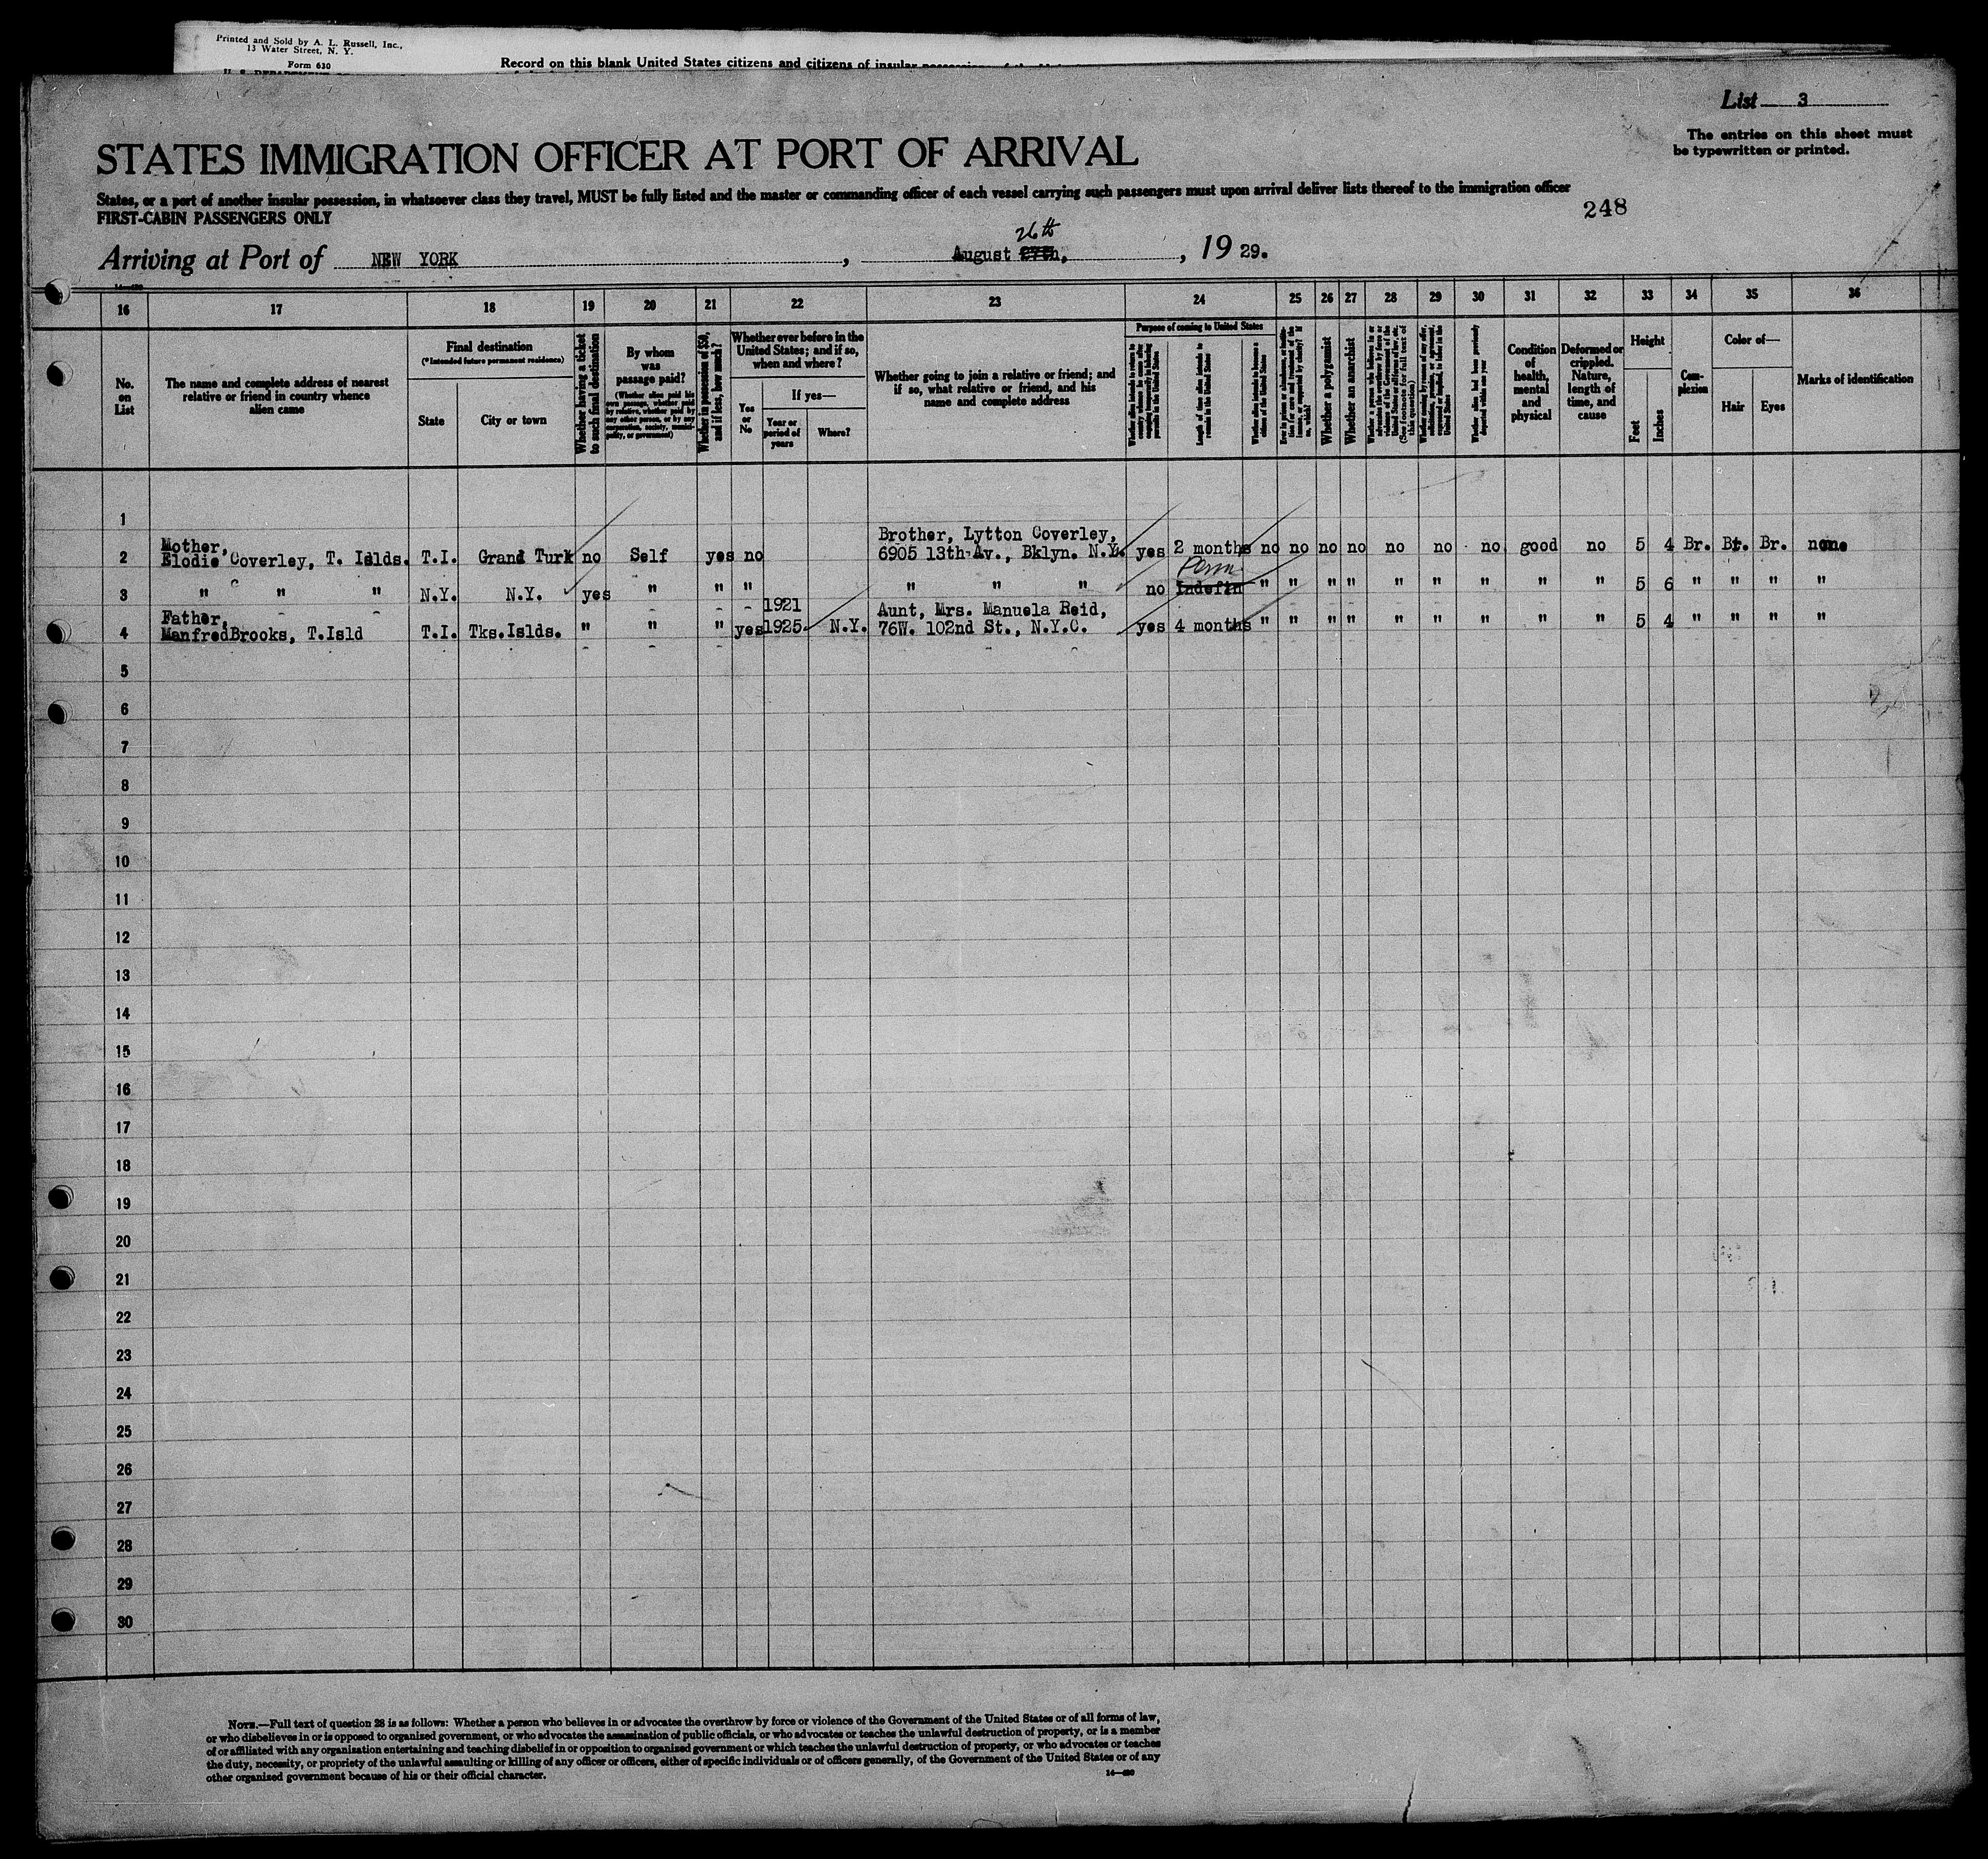 Printed and Sold by A. L. Russell, Inc.,
13 Water Street, N. Y.
Form 630
Record on this blank United States citizens and citizens of insular
List 3
The entries on this sheet must
be typewritten or printed.
STATES IMMIGRATION OFFICER AT PORT OF ARRIVAL
States, or a port of another insular possession, in whatsoever class they travel, MUST be fully listed and the master or commanding officer of each vessel carrying such passengers must upon arrival deliver lists thereof to the immigration officer
FIRST-CABIN PASSENGERS ONLY
248
26th
Arriving at Port of NEW YORK, August 27th, , 19 29.
16 17 18 19 20 21 22 23 24 25 26 27 28 29 30 31 32 33 34 35 36
No. on List
The name and complete address of nearest relative or friend in country whence alien came
Final destination
(*Intended future permanent residence)
State
City or town
Whether having a ticket to such final destination
By whom was passage paid?
(Whether alien paid his own passage, whether paid by relative, whether paid by any other person, or by any corporation, society, municipality, or government)
Whether in possession of $50, and if less, how much?
Whether ever before in the United States; and if so, when and where?
Yes or No
If yes—
Year or period of years
Where?
Whether going to join a relative or friend; and if so, what relative or friend, and his name and complete address
Purpose of coming to United States
Length of time alien intends to remain in the United States
Whether alien intends to become a citizen of the United States
Whether a polygamist
Whether an anarchist
Whether alien had been previously deported within one year
Condition of health, mental and physical
Deformed or crippled. Nature, length of time, and cause
Height
Feet
Inches
Complexion
Color of—
Hair
Eyes
Marks of identification
1
Mother, Brother, Lytton Coverley,
2 Elodie Coverley, T. Islds. T.I. Grand Turk no Self yes no 6905 13th Av., Bklyn. N.Y. yes 2 months no no no no no no no good no 5 4 Br. Br. Br. none
Perm
3 " " " N.Y. N.Y. yes " " " " " " no Indefin " " " " " " " " " 5 6 " " " "
Father, 1921 Aunt, Mrs. Manuela Reid,
4 Manfred Brooks, T.Isld T.I. Tks.Islds. " " " yes 1925 N.Y. 76W. 102nd St., N.Y.C. yes 4 months " " " " " " " " " 5 4 " " " "
5
6
7
8
9
10
11
12
13
14
15
16
17
18
19
20
21
22
23
24
25
26
27
28
29
30
NOTE.—Full text of question 28 is as follows: Whether a person who believes in or advocates the overthrow by force or violence of the Government of the United States or of all forms of law,
or who disbelieves in or is opposed to organized government, or who advocates the assassination of public officials, or who advocates or teaches the unlawful destruction of property, or is a member
of or affiliated with any organization entertaining and teaching disbelief in or opposition to organized government or which teaches the unlawful destruction of property, or who advocates or teaches
the duty, necessity, or propriety of the unlawful assaulting or killing of any officer or officers, either of specific individuals or of officers generally, of the Government of the United States or of any
other organized government because of his or their official character.